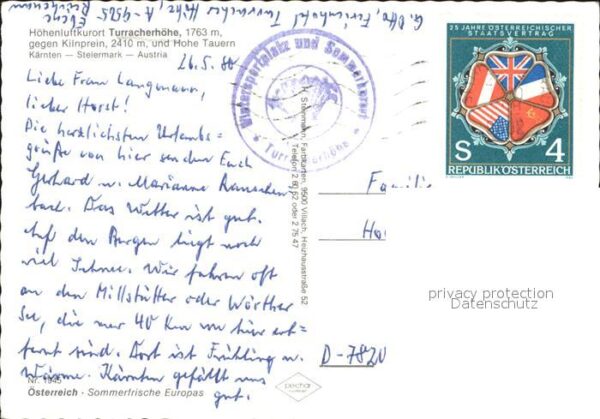 G. Otto, Ferienhotel Turracher
Höhe, A-9565
Ebene
Reichenau
Höhenluftkurort Turracherhöhe, 1763 m,
gegen Kilnprein, 2410 m, und Hohe Tauern
Kärnten — Steiermark — Austria
26.5.80
Liebe Frau Langmann,
lieber Horst!
Die herzlichsten Urlaubs=
grüße von hier senden Euch
Gerhard u. Marianne
bach. Das Wetter ist gut.
Auf den Bergen liegt noch
viel Schnee. Wir fahren oft
an den Millstätter oder Wörther
See, die nur 40 km von hier ent=
fernt sind. Dort ist Frühling u.
Wärme. Kärnten gefällt uns
gut.
Nr. 1945
Österreich · Sommerfrische Europas
Wintersportplatz und Sommerkurort
* Turracherhöhe *
H. Steinmann, Farbkarten, 9500 Villach, Heizhausstraße 52
Telefon 2 82 52 oder 2 75 47
pechar
25 JAHRE ÖSTERREICHISCHER
STAATSVERTRAG
S 4
REPUBLIK ÖSTERREICH
Famili
Ho
privacy protection
Datenschutz
D-7820